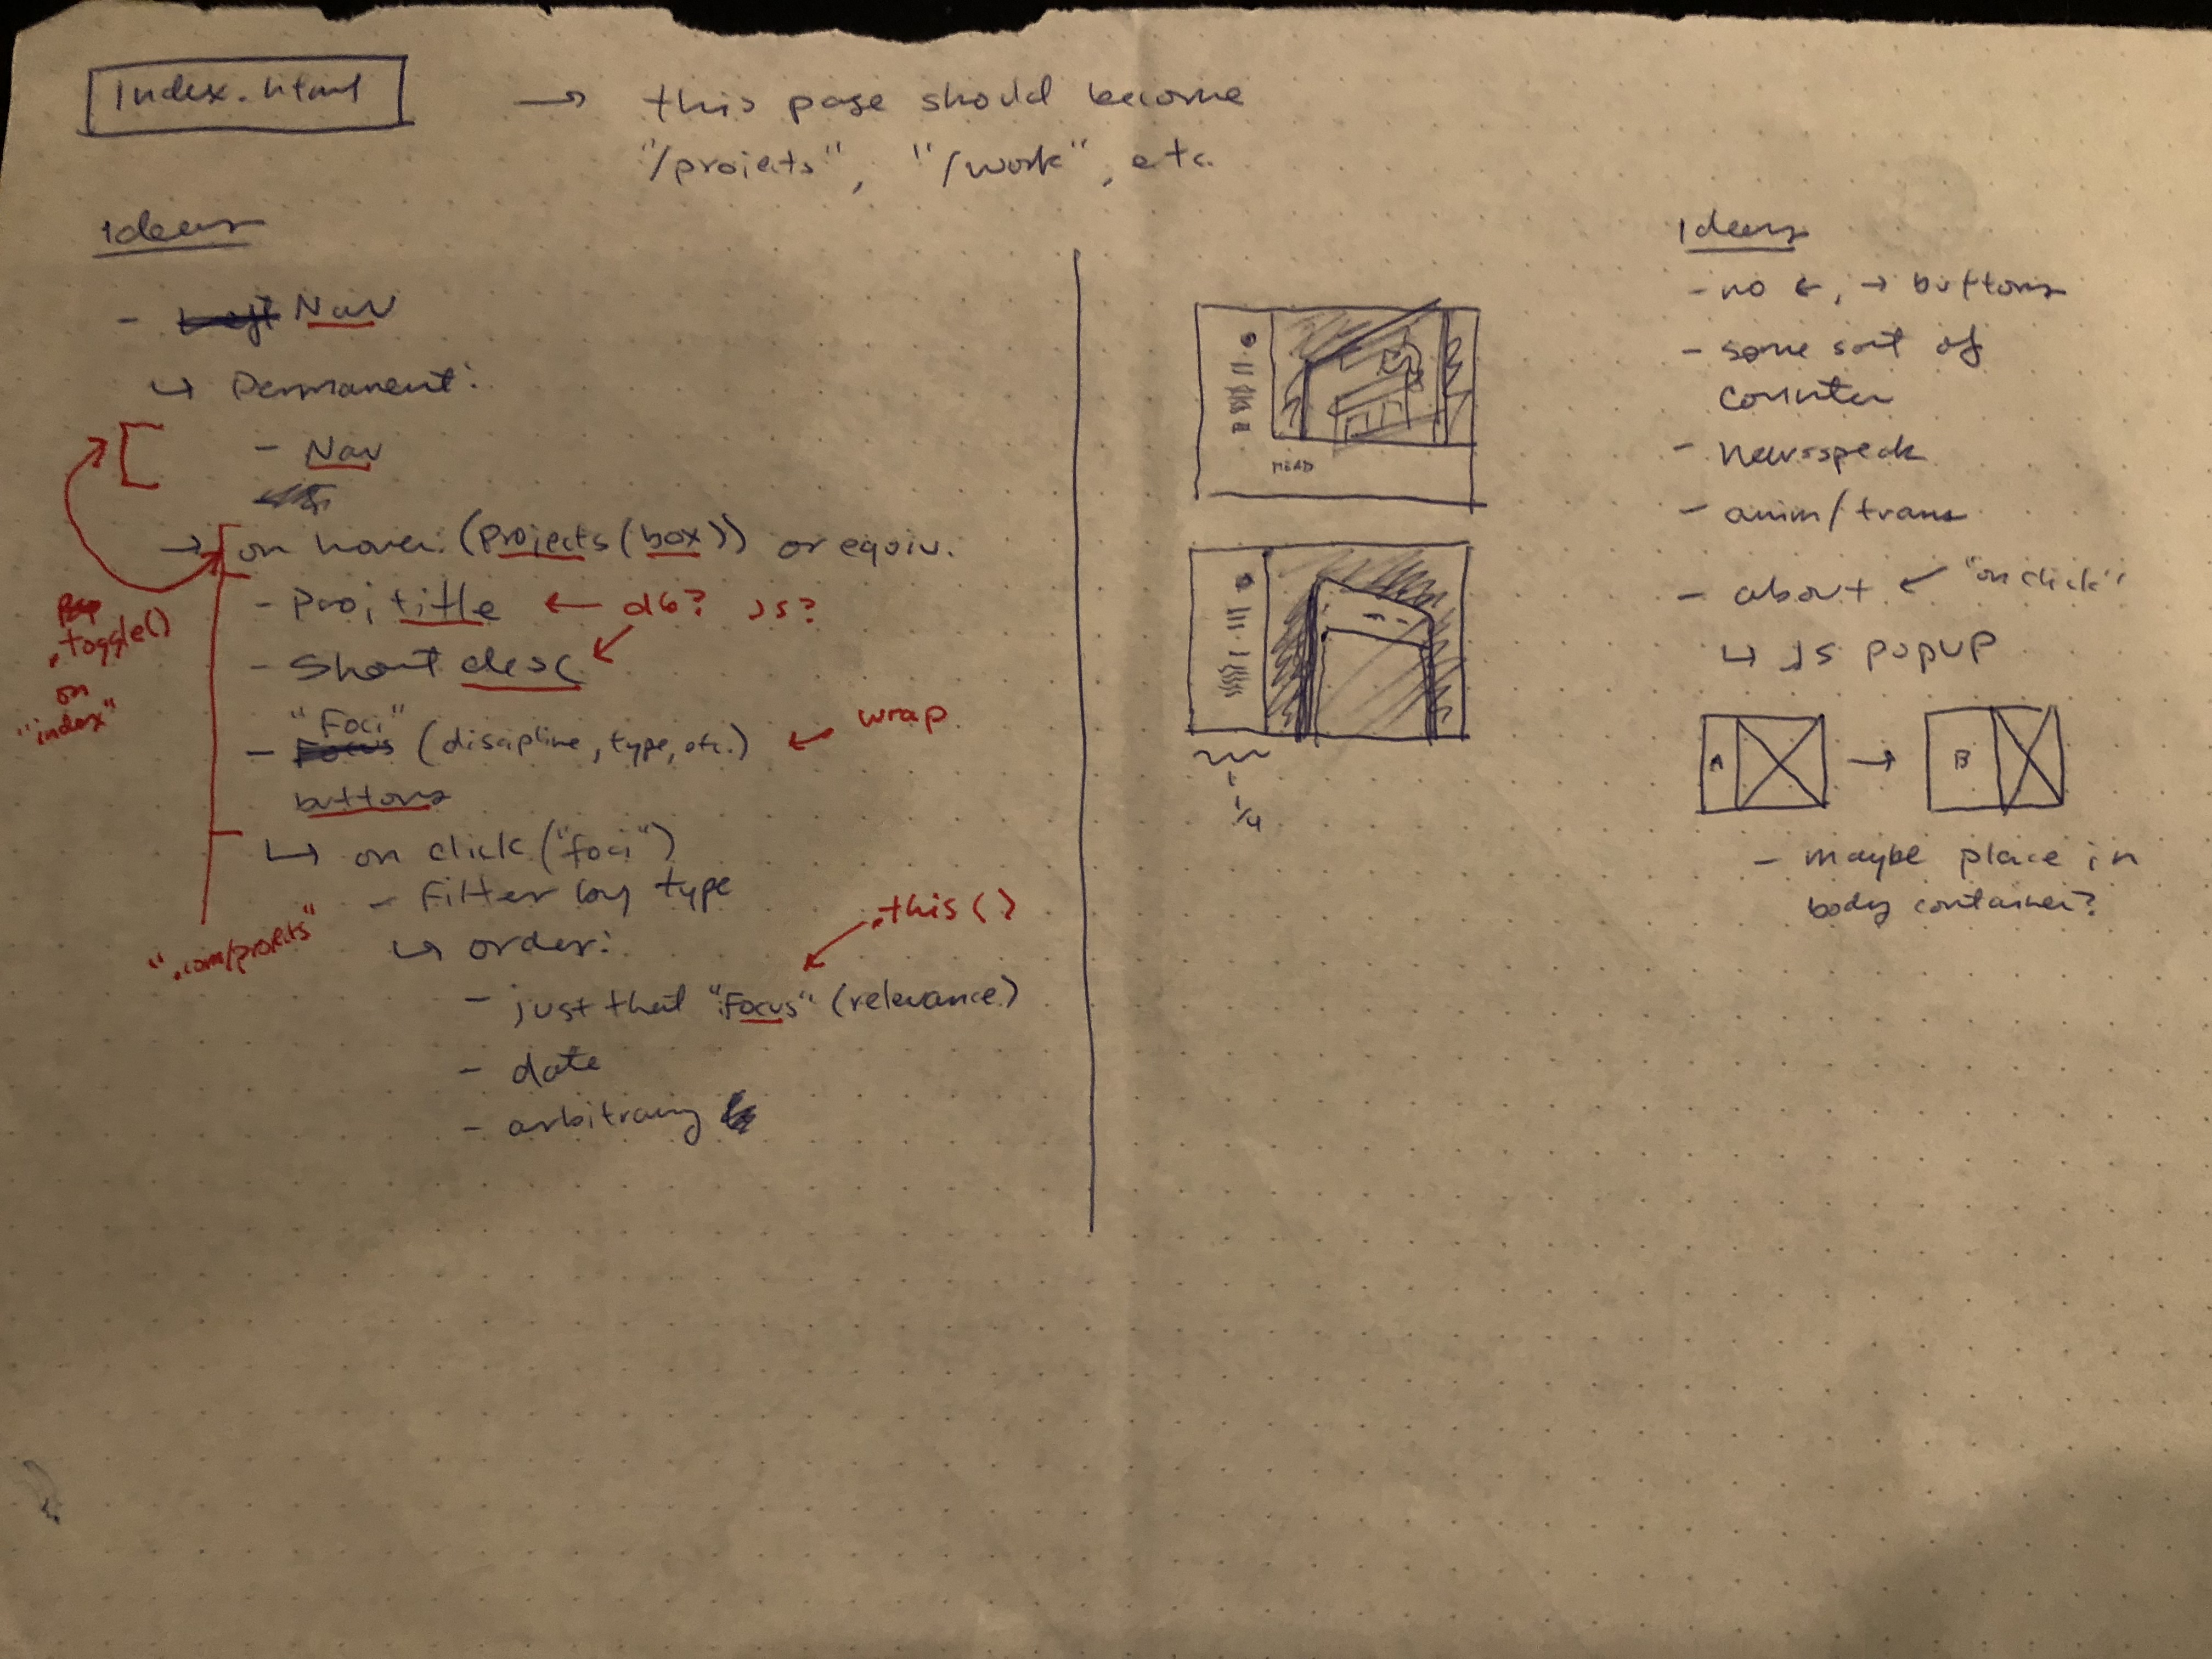 Index.html → this page should become
"/projects", "/work", etc.
Ideas
- Nav
↳ Permanent:
- Nav
→ on hover: (projects (box)) or equiv.
- proj title ← db? js?
- Short desc
"Foci"
- (discipline, type, etc.) ← wrap
buttons
↳ on click ("foci")
- filter by type
↳ order:
- just that "Focus" (relevance)
- date
- arbitrary
.toggle()
on
"index"
".com/projects"
.this()
HEAD
1/4
Ideas
- no ←, → buttons
- some sort of
counter
- Newsspeak
- anim/trans
- about ← "on click"
↳ JS popup
A → B
- maybe place in
body container?